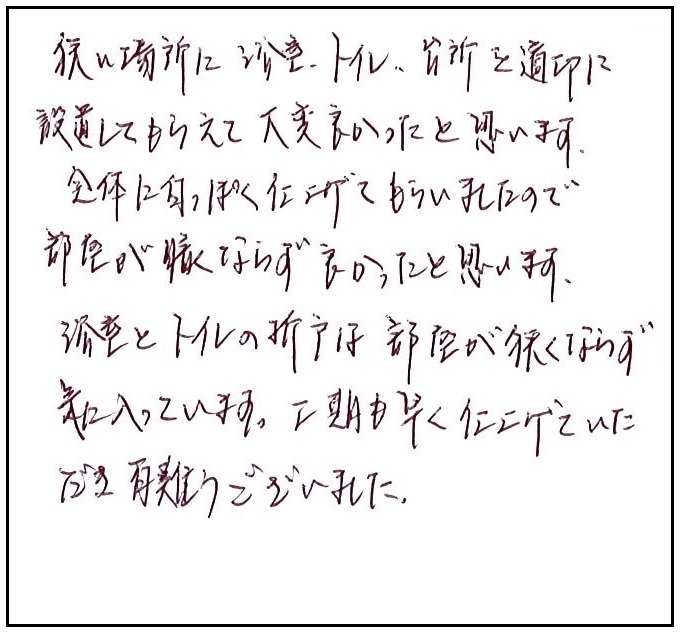 狭い場所に浴室、トイレ、台所を適切に
設置してもらえて大変良かったと思います。
全体に白っぽく仕上げてもらいましたので
部屋が暗くならず良かったと思います。
浴室とトイレの折戸は部屋が狭くならず
気に入っています。工期も早く仕上げていた
だき有難うございました。